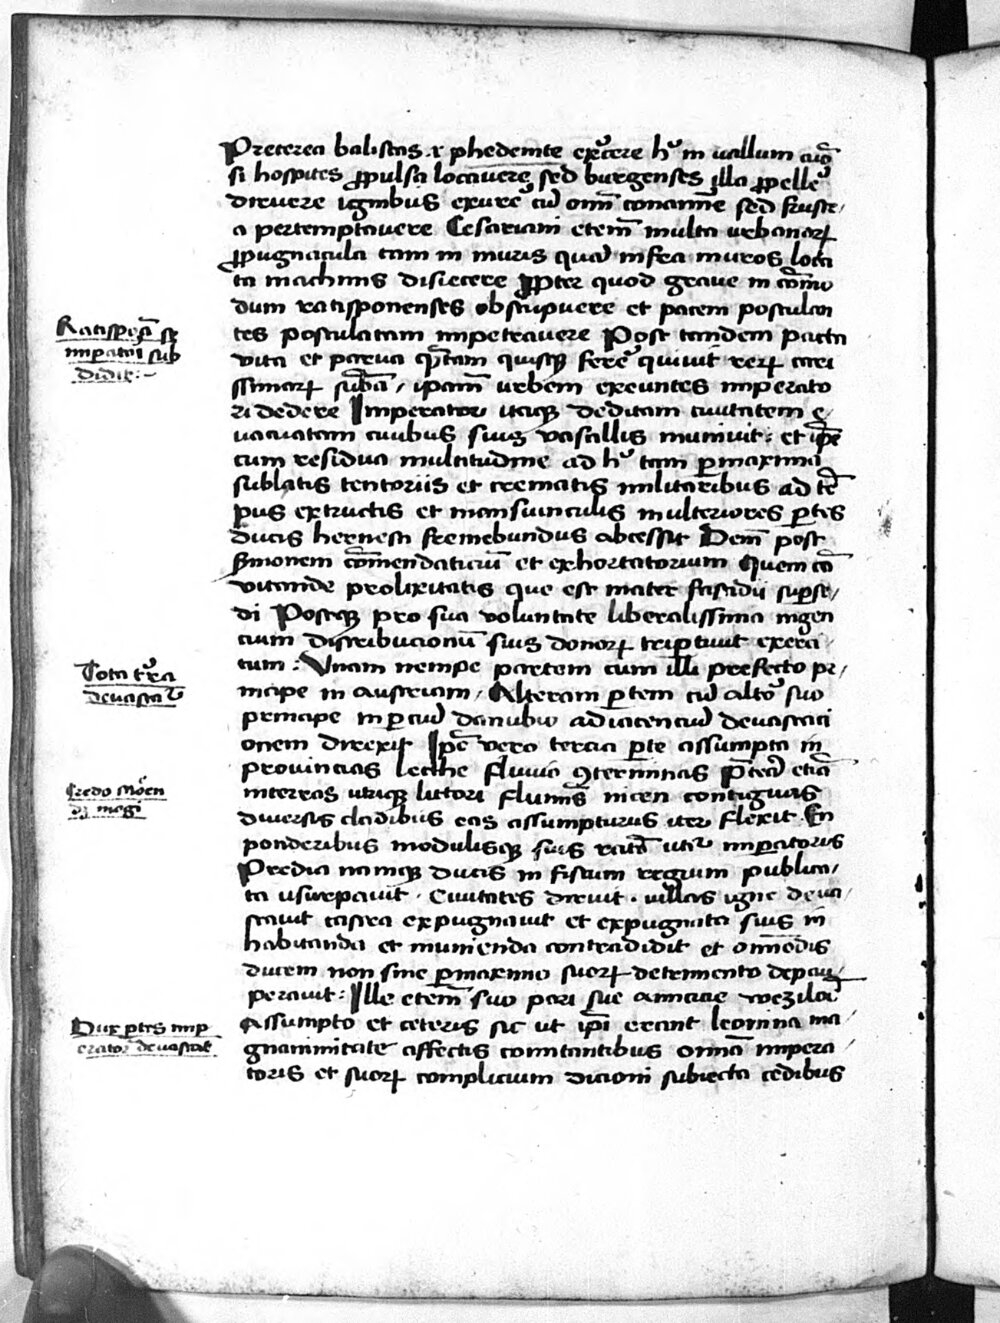 Preterea balistas r phedemte exercere hꝰ in vallum
si hospites ꝓpulsa locauere sed burgenses illa ꝓpelle
diruere ignibus exure cū omī conamīe sed frustr
a pertemptauere Cesariani etem̄ multa vrbanorꝝ
ꝓpugnacula tam in muris quā infra muros loca
ta machinis disiecere ꝓpter quod graue in cōmo
dum ratisponenses obstupuere et pacem postulan
tes postulatam impetrauere Post tandem pacta
vita et parua quisqꝫ fere quiuit rerꝝ cari
ssimarꝝ ipam̄ vrbem exeuntes imperato
ri dedere Imperator itaqꝫ deditam ciuitatem e
uacuatam ciuibus suis vasallis muniuit : et ip̄e
cum residua multitudine ad hꝰ tam ꝑmaxima
sublatis tentoriis et crematis militaribus ad tē
pus extructis et mansiunculis in vlteriores ꝑtes
ducis hernesti fremebundus abcessit Dem̄ post
sermonem cōmendaticiū et exhortatorium Quem cā
vitande prolixitatis que est mater fastidii suꝑse
di Postqꝫ pro sua voluntate liberalissima ingen
cium distribucionū suis donorꝝ triꝑtiuit exerci
tum : Vnam nempe partem cum illi prefecto pri
ncipe in austriam / Alteram ꝑtem cū altō suo
principe in ꝑciū danubio adiacenciū deuastaci
onem direxit Ip̄e vero tercia ꝑte assumpta in
prouincias leche fluuio ꝯterminas
interras vtiqꝫ lutori fluminis nicen contiguas
diuersis cladibus eas assumpturus iter flexit En
ponderibus modulisqꝫ suis vtitur imꝑatoris
Predia namqꝫ ducis in fiscum regium publica
ta vsurpauit . Ciuitates diruit . villas igne deua
stauit castra expugnauit et expugnata suis in
habitanda et munienda contradidit et oīmodis
ducem non sine ꝑmaximo suorꝝ detrimento depau
perauit : Ille etem̄ suo pari sue amicicie wezilōi
Assumpto et ceteris sic ut ip̄i erant leonina ma
gnanimitate affectis comitantibus omīa impera
toris et suorꝝ complicium dicioni subiecta cedibus
Ratisponā se
imꝑatori sub
didit :~
Tota terra
deuastatur
Credo
Dux ꝑtes imp
eratoris deuastat